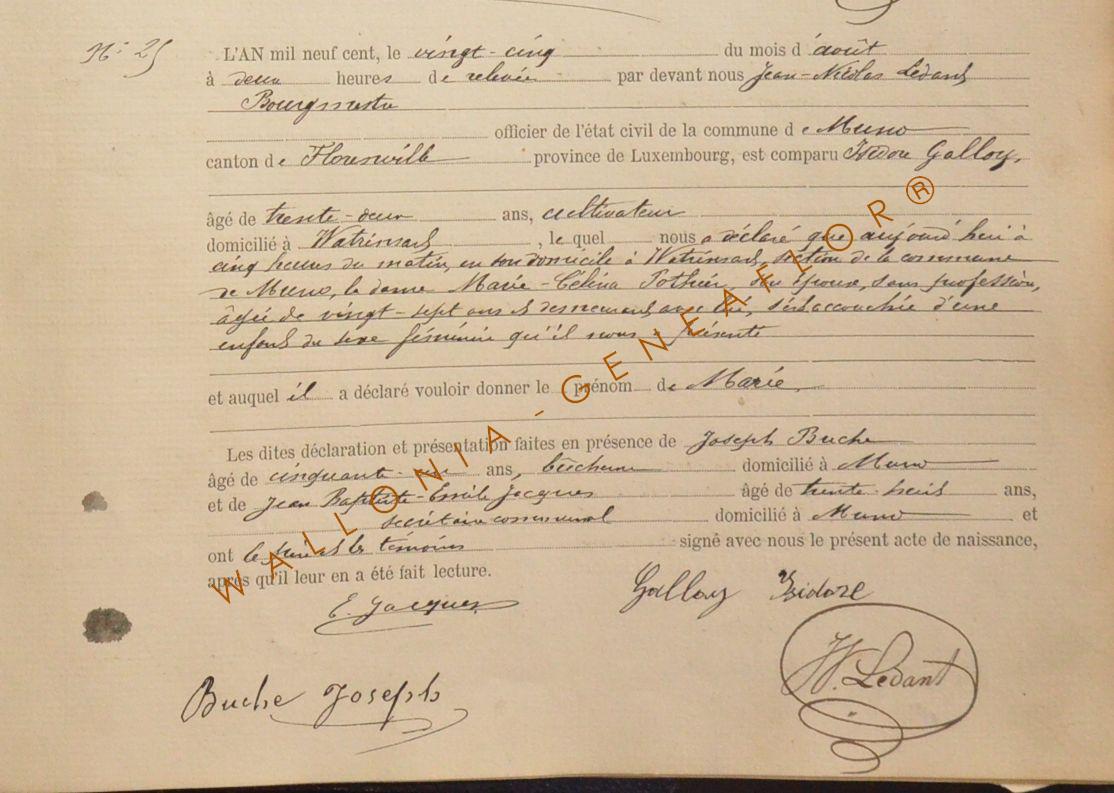 N° 25
L'AN mil neuf cent, le vingt-cinq du mois d'août
à deux heures de relevée par devant nous Jean-Nicolas Ledant
Bourgmestre
officier de l'état civil de la commune de Muno
canton de Florenville province de Luxembourg, est comparu Isidore Galloy,
âgé de trente-deux ans, cultivateur
domicilié à Watrinsart, le quel nous a déclaré que aujourd'hui à
cinq heures du matin, en son domicile à Watrinsart, section de la commune
de Muno, la dame Marie-Célina Pothier, son épouse, sans profession,
âgée de vingt-sept ans et demeurant avec lui, s'est accouchée d'une
enfant du sexe féminin qu'il nous présente
et auquel il a déclaré vouloir donner le prénom de Marie,
Les dites déclaration et présentation faites en présence de Joseph Buche
âgé de cinquante- ans, bûcheron domicilié à Muno
et de Jean Baptiste-Emile Jacques âgé de trente-huit ans,
secrétaire communal domicilié à Muno et
ont le père et les témoins signé avec nous le présent acte de naissance,
après qu'il leur en a été fait lecture.
E. Jacques
Galloy Isidore
N. Ledant
Buche Joseph
WALLONIA-GENEAFLOR®